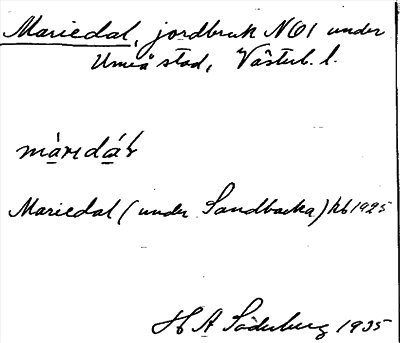 Mariedal, jordbruk No 1 under
Umeå stad, Västerb. l.
Mariedal (under Sandbacka) kb 1925
H A Söderberg 1935